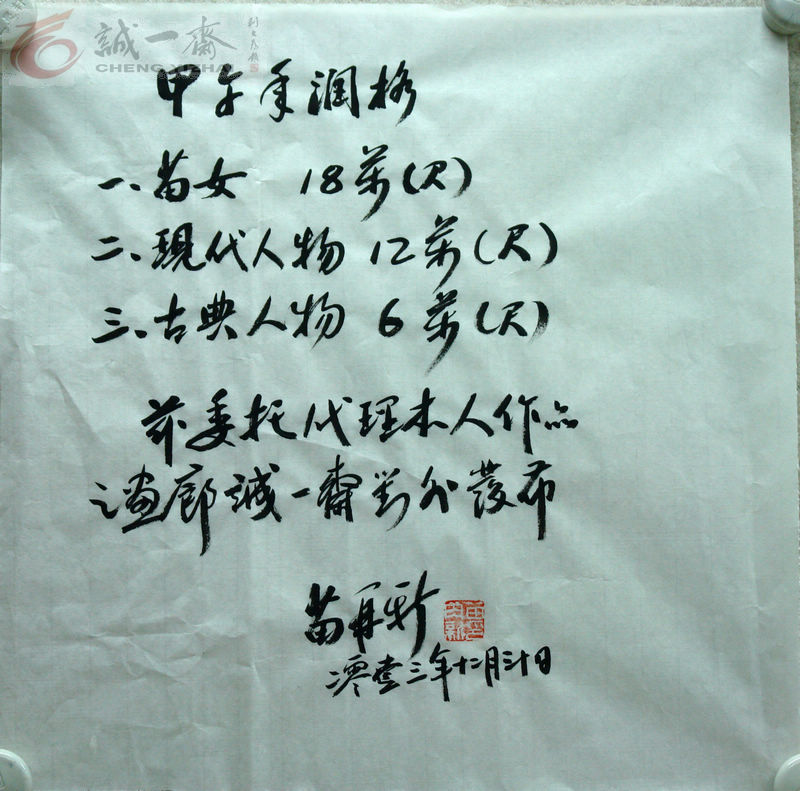 誠一齋
CHENG YIZHAI
甲午年润格
一、苗女 18萬(尺)
二、現代人物 12萬(尺)
三、古典人物 6萬(尺)
茲委托代理本人作品
之画廊誠一齋對外發布
苗再新
二零壹三年十二月三十日